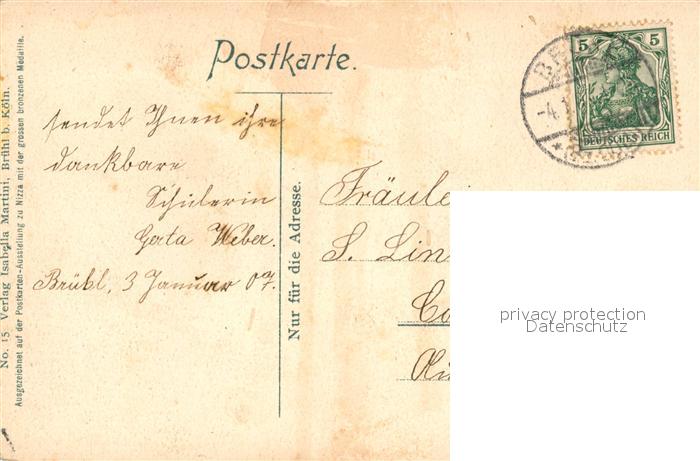 Postkarte.
sendet Ihnen ihre
dankbare
Schülerin
Gerta Weber.
Brühl, 3 Januar 07.
Nur für die Adresse.
Fräulei
S. Lin
No. 15 Verlag Isabella Martini, Brühl b. Köln.
Ausgezeichnet auf der Postkarten-Ausstellung zu Nizza mit der grossen bronzenen Medaille.
5 5
DEUTSCHES REICH
BR
-4.1
privacy protection
Datenschutz